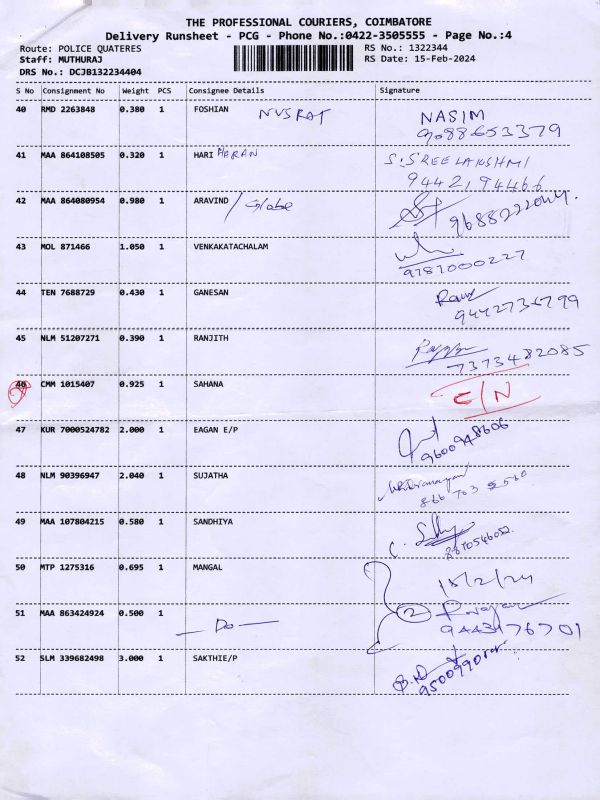 THE PROFESSIONAL COURIERS, COIMBATORE
Delivery Runsheet - PCG - Phone No.:0422-3505555 - Page No.:4
Route: POLICE QUATERES RS No.: 1322344
Staff: MUTHURAJ RS Date: 15-Feb-2024
DRS No.: DCJB132234404
S No Consignment No Weight PCS Consignee Details Signature
40 RMD 2263848 0.380 1 FOSHIAN NUSRAT NASIM
9088653379
41 MAA 864108505 0.320 1 HARI HARAN S.SREELAKSHMI
9442194466
42 MAA 864080954 0.980 1 ARAVIND / Globe
43 MOL 871466 1.050 1 VENKAKATACHALAM
9787000227
44 TEN 7688729 0.430 1 GANESAN
9442736799
45 NLM 51207271 0.390 1 RANJITH
7373482085
46 CMM 1015407 0.925 1 SAHANA C/N
47 KUR 7000524782 2.000 1 EAGAN E/P
9600948606
48 NLM 90396947 2.040 1 SUJATHA
49 MAA 107804215 0.580 1 SANDHIYA
8870546052
50 MTP 1275316 0.695 1 MANGAL 15/2/24
51 MAA 863424924 0.500 1 — Do — 2
9443176701
52 SLM 339682498 3.000 1 SAKTHIE/P